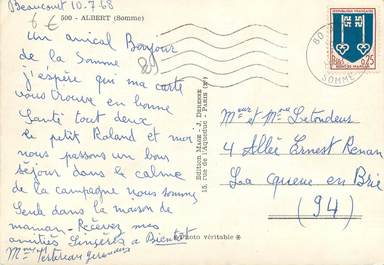 Beaucourt 10.7.68
500 - ALBERT (Somme)
6 €
Un amical Bonjour
de la Somme
J'espère que ma carte
vous trouve en bonne
Santé tout deux
le petit Roland et moi
nous passons un bon
séjour dans le calme
de la campagne nous sommes
Seule dans la maison de
maman - Recevez mes
amitiés Sincères à Bientot
Mme
Edition MAGE - J. DERENNE
15, rue de l'Aqueduc - PARIS (Xe)
✻ Photo véritable ✻
REPUBLIQUE FRANÇAISE
0,25
MONT-DE-MARSAN
80
SOMME
Meur et Mme Letondeur
4 Allée Ernest Renan
La queue en Brie
(94)